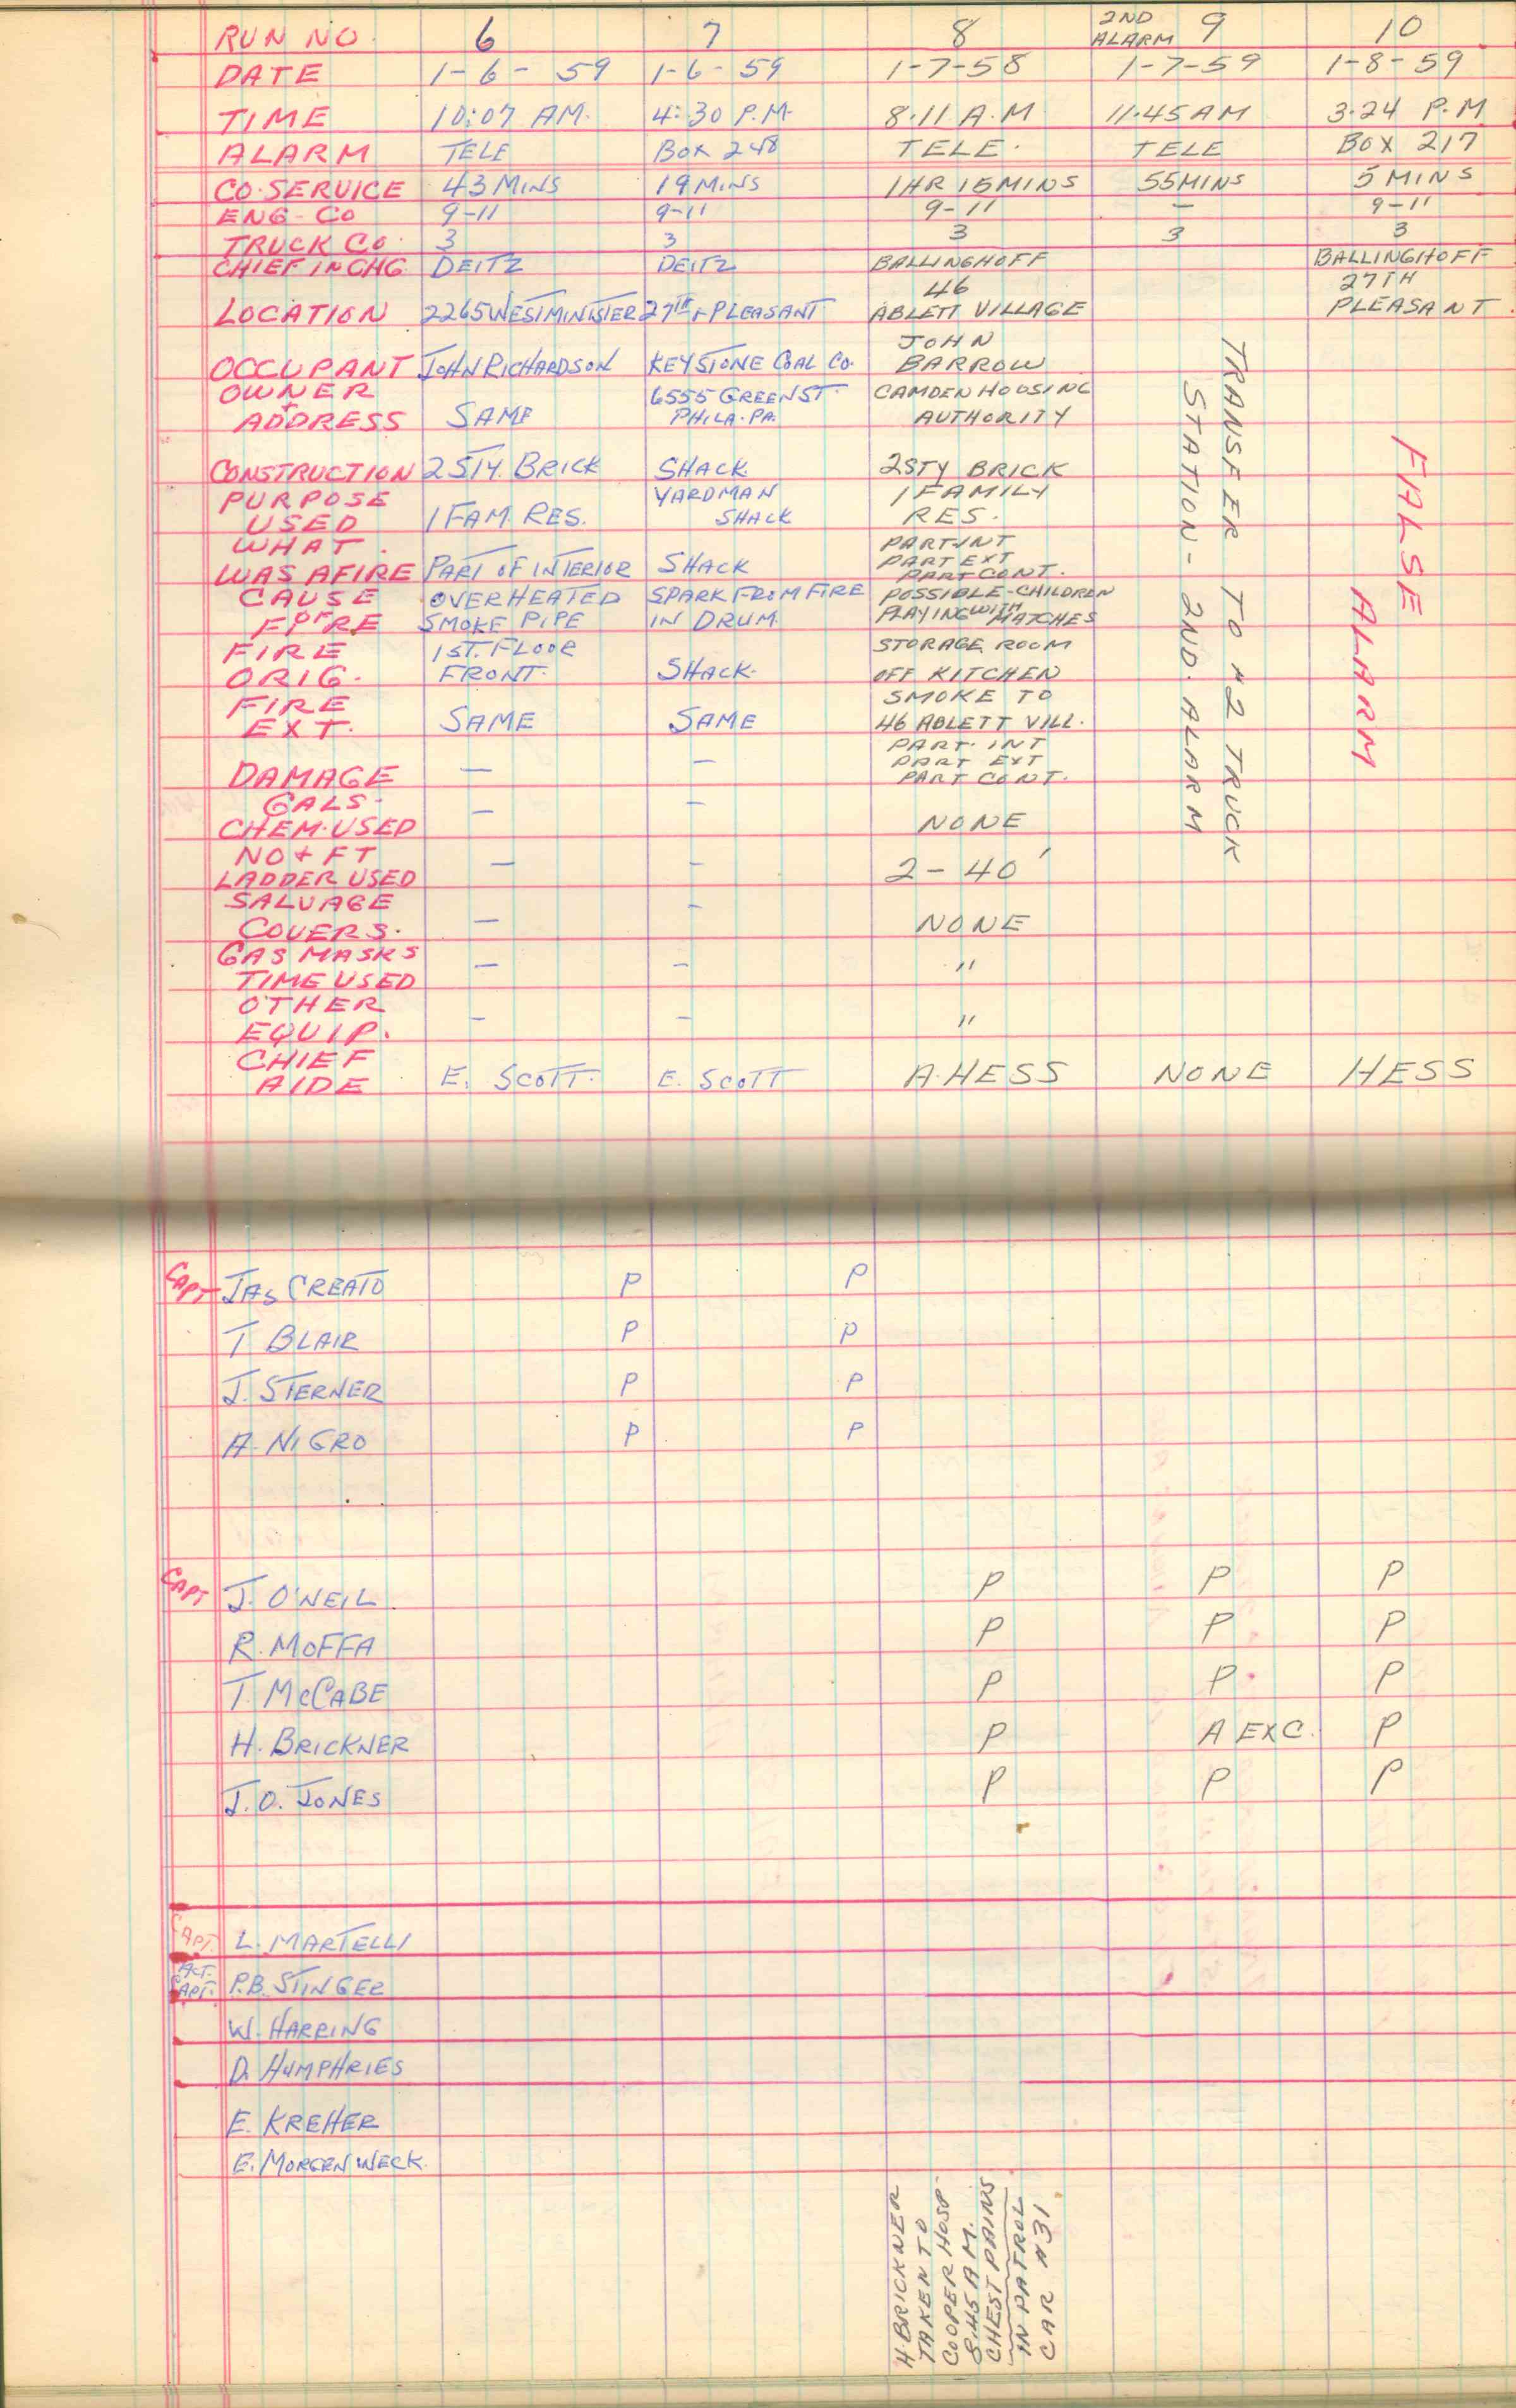 RUN NO. 6 7 8 2ND ALARM 9 10
DATE 1-6-59 1-6-59 1-7-58 1-7-59 1-8-59
TIME 10:07 AM. 4:30 P.M. 8.11 A.M 11.45 AM 3.24 P.M
ALARM TELE BOX 248 TELE. TELE BOX 217
CO. SERVICE 43 MINS 19 MINS 1HR 15 MINS 55 MINS 5 MINS
ENG-CO 9-11 9-11 9-11 - 9-11
TRUCK CO. 3 3 3 3 3
CHIEF IN CHG. DEITZ DEITZ BALLINGHOFF BALLINGHOFF
46 27TH
LOCATION 2265 WESTMINISTER 27TH + PLEASANT ABLETT VILLAGE PLEASANT
JOHN
OCCUPANT JOHN RICHARDSON KEYSTONE COAL CO. BARROW
OWNER 6555 GREEN ST. CAMDEN HOUSING
+ ADDRESS SAME PHILA. PA. AUTHORITY
CONSTRUCTION 2 STY. BRICK SHACK 2STY BRICK
PURPOSE YARDMAN 1 FAMILY
USED 1 FAM. RES. SHACK RES.
WHAT PART INT
PART EXT
WAS AFIRE PART OF INTERIOR SHACK PART CONT.
CAUSE OVERHEATED SPARK FROM FIRE POSSIBLE-CHILDREN
OF FIRE SMOKE PIPE IN DRUM PLAYING WITH MATCHES
FIRE 1ST. FLOOR STORAGE ROOM
ORIG. FRONT. SHACK. OFF KITCHEN
FIRE SMOKE TO
EXT. SAME SAME 46 ABLETT VILL.
PART. INT
PART EXT
DAMAGE — — PART CONT.
GALS.
CHEM. USED — — NONE
NO + FT
LADDER USED — — 2-40'
SALVAGE
COVERS. — — NONE
GAS MASKS
TIME USED — — "
OTHER
EQUIP. — — "
CHIEF
AIDE E. SCOTT. E. SCOTT A. HESS NONE HESS
TRANSFER TO #2 TRUCK
STATION - 2ND. ALARM
FALSE
ALARM
CAPT JAS CREATO P P
T BLAIR P P
J. STERNER P P
A. NIGRO P P
CAPT J. O'NEIL P P P
R. MOFFA P P P
T. MCCABE P P. P
H. BRICKNER P A EXC. P
J.O. JONES P P P
CAPT. L. MARTELLI
ACT. CAPT. P.B. STINGER
W. HARRING
D. HUMPHRIES
E. KREHER
E. MORGENWECK.
H. BRICKNER
TAKEN TO
COOPER HOSP
8.45 A.M.
CHEST PAINS
IN PATROL
CAR #31